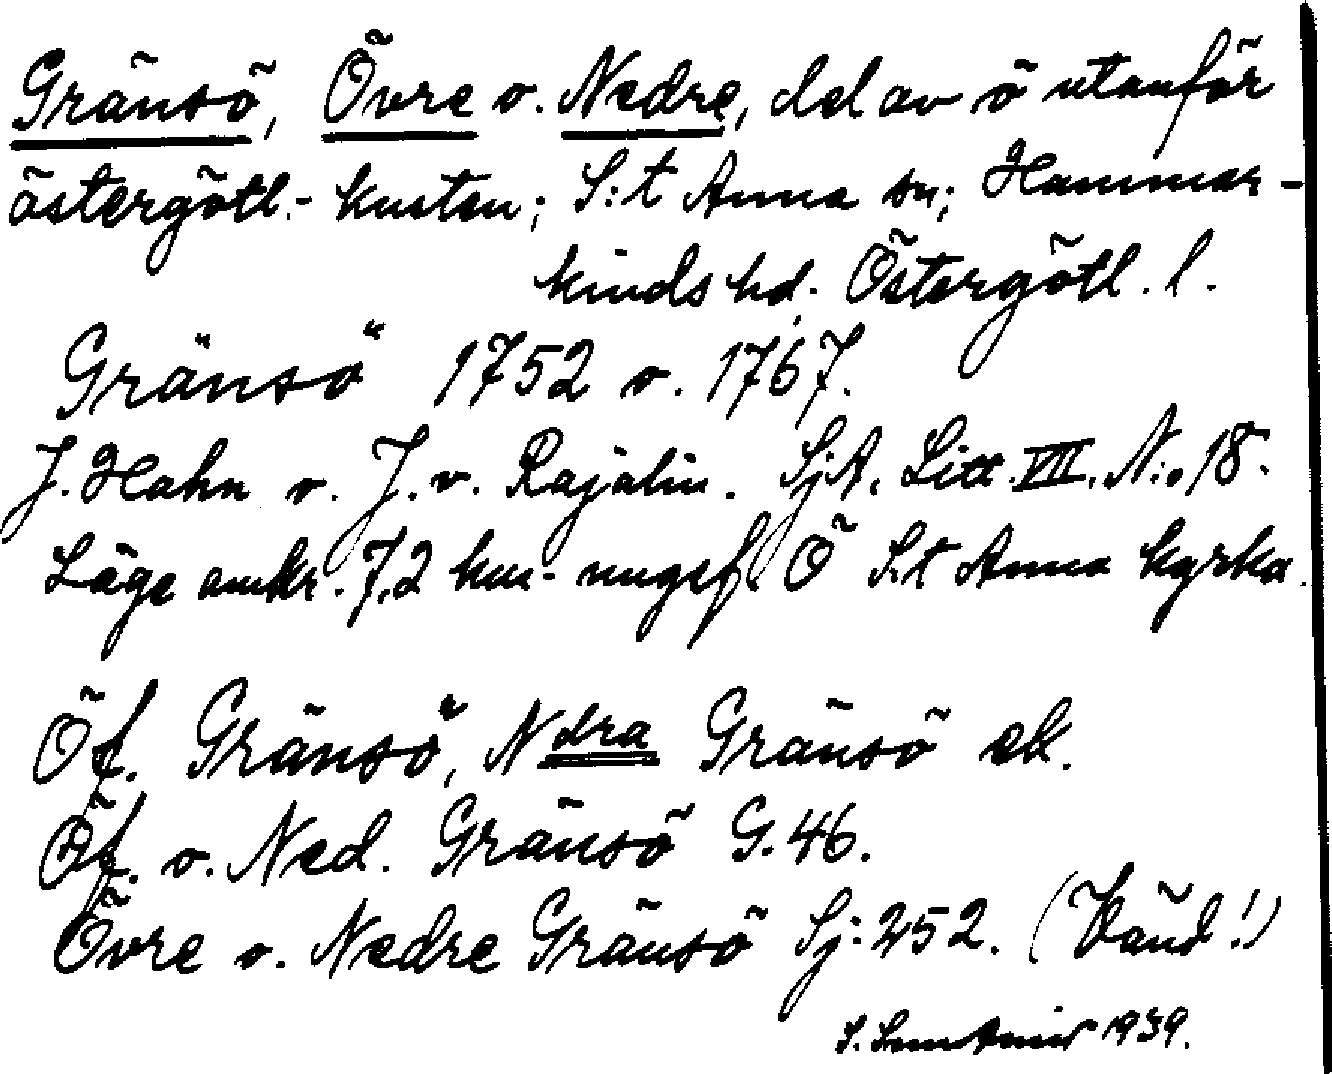 Gränsö, Övre o. Nedre, del av ö utanför
östergötl.- kusten; S:t Anna sn; Hammar-
kinds hd. Östergötl. l.
Gränsö 1752 o. 1767.
J. Hahn o. J. v. Rajalin. SjA. Litt. VII. N:o 18.
Läge omkr. 7,2 km- ungef. Ö S:t Anna kyrka.
Öf. Gränsö, Ndra Gränsö ek.
Öf. o. Ned. Gränsö G. 46.
Övre o. Nedre Gränsö Sj: 252. (Vänd!)
S. 1939.